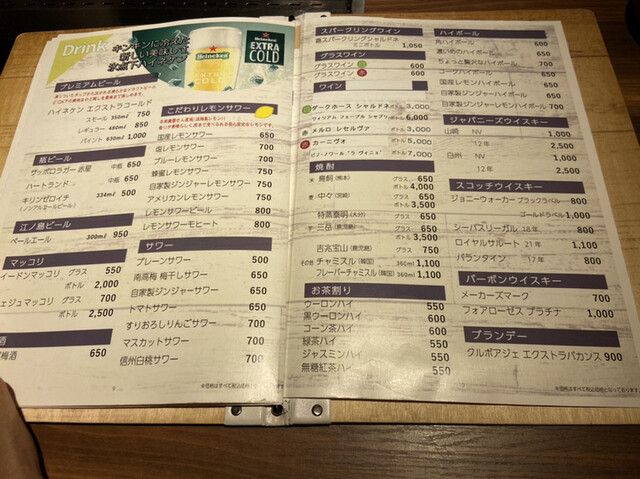 Drink
キンキンに冷えた
新しい美味しさ
氷点下ハイネケン
Heineken
EXTRA
COLD
プレミアムビール
ハイネケン エクストラコールド
スモール 350ml 750
レギュラー 480ml 850
パイント 630ml 1,000
瓶ビール
サッポロラガー 赤星 中瓶 650
ハートランド 中瓶 650
キリンゼロイチ 334ml 500
(ノンアルコールビール)
江ノ島ビール
ペールエール 300ml 950
マッコリ
イードンマッコリ グラス 550
ボトル 2,000
ェジュマッコリ グラス 700
ボトル 2,500
酒
梅酒 650
こだわりレモンサワー
国産レモンサワー 650
塩レモンサワー 700
ブルーレモンサワー 700
蜂蜜レモンサワー 750
自家製ジンジャーレモンサワー 750
アメリカンレモンサワー 750
レモンサワービール 800
レモンサワーモヒート 800
サワー
プレーンサワー 500
南高梅 梅干しサワー 650
自家製ジンジャーサワー 650
トマトサワー 650
すりおろしりんごサワー 700
マスカットサワー 700
信州白桃サワー 700
スパークリングワイン
ミニボトル 1,050
グラスワイン
グラスワイン 600
グラスワイン 600
ワイン
ダークホース シャルドネ ボトル 3,000
ヴィリアム フェーブル シャブリ ボトル 6,000
メルロ レセルヴァ ボトル 3,000
カーニヴォ ボトル 5,000
ピノ・ノワール "ラ ヴィニエ" ボトル 7,000
焼酎
米 鳥飼(熊本) グラス 650
ボトル 4,000
麦 中々(宮崎) グラス 650
ボトル 3,500
特蒸泰明(大分) グラス 650
芋 三岳(鹿児島) グラス 650
ボトル 3,500
吉兆宝山(鹿児島) グラス 750
その他 チャミスル(韓国) 360ml 1,100
フレーバーチャミスル(韓国) 360ml 1,100
お茶割り
ウーロンハイ 550
黒ウーロンハイ 600
コーン茶ハイ 600
緑茶ハイ 550
ジャスミンハイ 550
無糖紅茶ハイ 550
ハイボール
角ハイボール 600
濃いめのハイボール 650
ちょっと贅沢なハイボール 700
コークハイボール 600
国産レモンハイボール 650
自家製ジンジャーハイボール 650
自家製ジンジャーレモンハイボール 700
ジャパニーズウイスキー
山崎 NV 1,000
12年 2,500
白州 NV 1,000
12年 2,500
スコッチウイスキー
ジョニーウォーカー ブラックラベル 800
ゴールドラベル 1,000
シーバスリーガル 18年 800
ロイヤルサルート 21年 1,100
バランタイン 12年 800
バーボンウイスキー
メーカーズマーク 700
フォアローゼス プラチナ 1,000
ブランデー
クルボアジェ エクストラバカンス 900
※価格はすべて税込価格となっております。